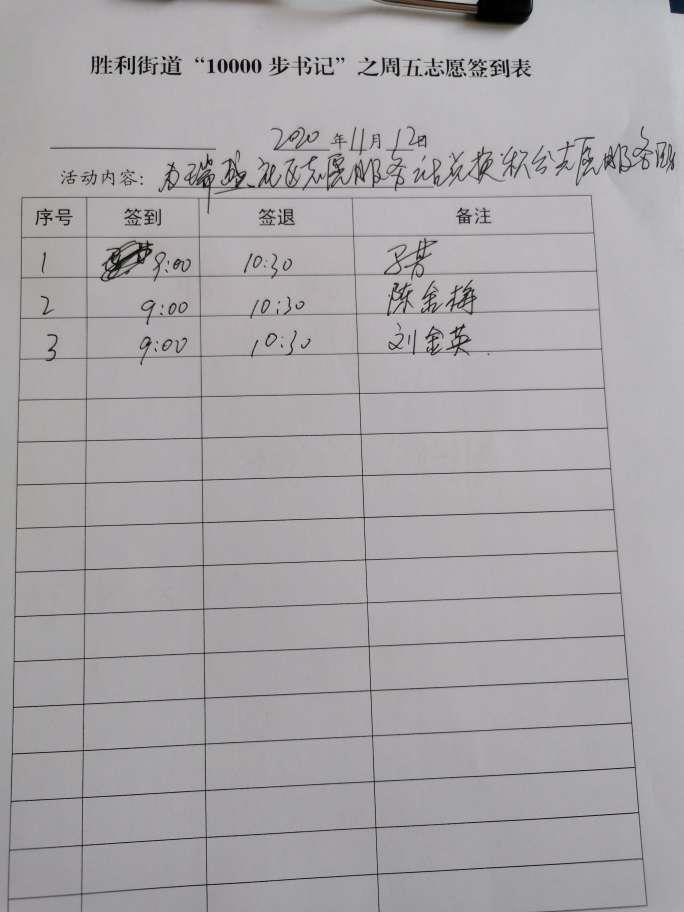 胜利街道“10000步书记”之周五志愿签到表
2020年11月12日
活动内容：为瑞 社区志愿服务站兑换积分志愿服务
序号 签到 签退 备注
1 9:00 10:30
2 9:00 10:30 陈金梅
3 9:00 10:30 刘金英.